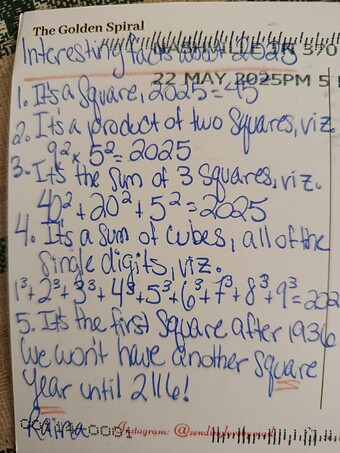 The Golden Spiral
Interesting facts about 2025
NASHVILLE TN 370
22 MAY 2025PM 5
1. It's a Square, 2025 = 45
2. It's a product of two Squares, viz.
9² x 5² = 2025
3. It's the sum of 3 squares, viz.
40² + 20² + 5² = 2025
4. It's a sum of cubes, all of the
single digits, viz.
1³+2³+3³+4³+5³+6³+7³+8³+9³=202
5. It's the first square after 1936
We won't have another square
year until 2116!
Raina
Instagram: